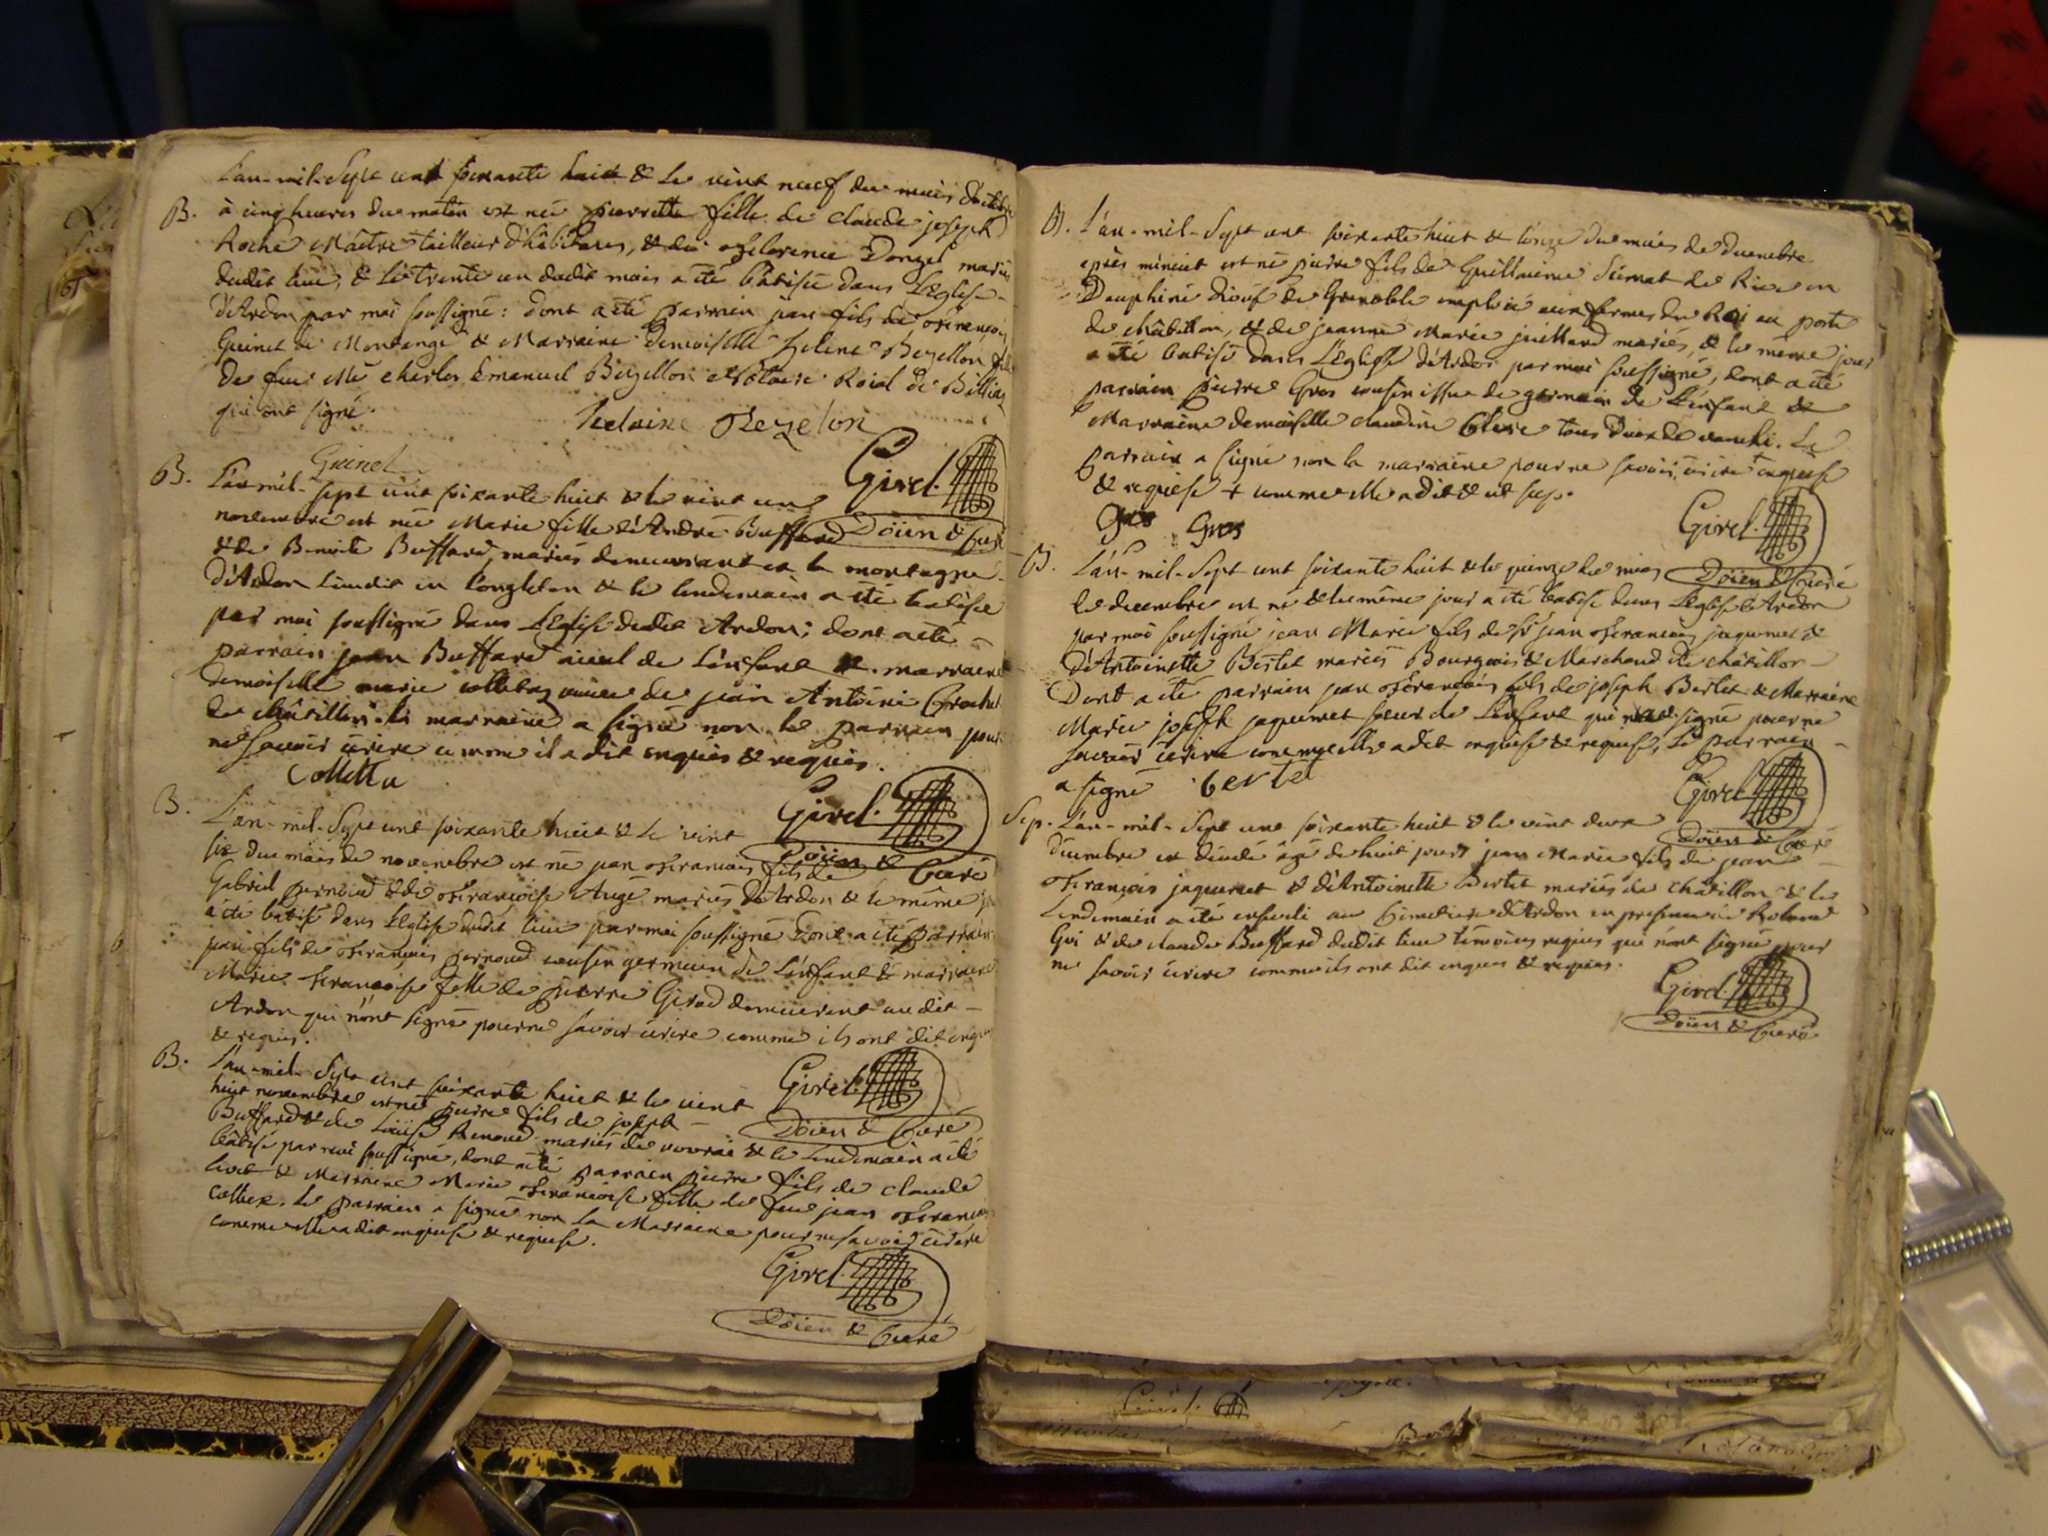 L'an-mil-Sept cent soixante huit & le vint neuf du mois d'octobre
B. à cinq heures du matin est née pierrette fille de claude joseph
Roche Maître tailleur d'habits, & de florence Donzel mariés
dudit lieu, & le trente un dudit mois a été bâtisée dans L'Eglise
d'Ardon par moi soussigné: dont a été parrain jean fils de françois
Guinet de Montange & Marraine demoiselle helene Bezellon fille
de feu Me charles Emanuel Bezellon Notaire Roial de Billiat
qui ont signé.
helaine Bezelon
Guinet
Girel.
Doïen & Curé
B. L'an-mil-sept cent soixante huit & le vint un
novembre est née Marie fille d'André Buffard
& de Benoite Buffard mariés demeurant en la montagne
d'Ardon Lieudit en longleton & le lendemain a été batisée
par moi soussigné dans L'Eglise dudit Ardon; dont a été
parrain jean Buffard aieul de L'enfant & marraine
demoiselle marie colletaz de jean Antoine Crochet
de châtillon. la marraine a signé non le parrain pour
ne savoir ecrire comme il a dit enquis & requis.
Colletta
Girel.
Doïen & Curé
B. L'an-mil-Sept cent soixante huit & le vint
six du mois de novembre est né jean francois fils de
Gabriel pernoud & de françoise Augé mariés d'Ardon & le même
a été bâtisé dans L'Eglise dudit lieu par moi soussigné dont a été parrain
jean fils de françois pernoud cousin germain de L'enfant & marraine
Marie françoise fille de pierre Girod demeurent audit
Ardon qui n'ont signé pour ne savoir ecrire comme ils ont dit enquis
& requis.
Girel.
Doïen & Curé
B. L'an-mil-Sept cent soixante huit & le vint
huit novembre est né pierre fils de joseph
Buffard & de Loüise Renoud mariés de vouvrai & le lendemain a été
bâtisé par moi soussigné, dont a été parrain pierre fils de claude
& Marraine Marie françoise fille de feu jean françois
Collet. le parrain a signé non la Marraine pour ne savoir ecrire
comme elle a dit enquise & requise.
Girel.
Doïen & Curé
B. L'an-mil-Sept cent soixante huit & l'onze du mois de decembre
après minuit est né pierre fils de Guillaume Sermat de Rives en
Dauphiné dioc. de Grenoble emploié aux fermes du Roi au poste
de châtillon, & de jeanne Marie juillard mariés, & le même jour
a été batisé dans L'Eglise d'Ardon par moi soussigné, dont a été
parrain pierre Gros cousin issu de germain de L'enfant &
Marraine demoiselle claudine Clerc tous deux de vanchi. Le
parrain a signé non la marraine pour ne savoir ecrire + enquise
& requise + comme elle a dit & ut sup.
Gros Gros
Girel.
Doïen & Curé
B. L'an-mil-Sept cent soixante huit & le quinze du mois
de decembre est né & le même jour a été batisé dans L'Eglise d'Ardon
par moi soussigné jean Marie fils de Sr jean françois jaquemet &
d'Antoinette Bertet mariés Bourgeois & Marchand de châtillon
Dont a été parrain jean françois fils de joseph Bertet & Marraine
Marie joseph jaquemet soeur de L'enfant qui n'a signé pour ne
savoir ecrire comme elle a dit enquise & requise, le parrain
a signé bertet
Girel
Doïen & Curé
Sep. L'an-mil-Sept cent soixante huit & le vint deux
decembre est décédé âgé de huit jours jean Marie fils de jean
françois jaquemet & d'Antoinette Bertet mariés de châtillon & le
Lendemain a été enseveli au Cimetière d'Ardon en presence de Roland
Gui & de claude Buffard dudit lieu témoins requis qui n'ont signé pour
ne savoir ecrire comme ils ont dit enquis & requis.
Girel.
Doïen & Curé